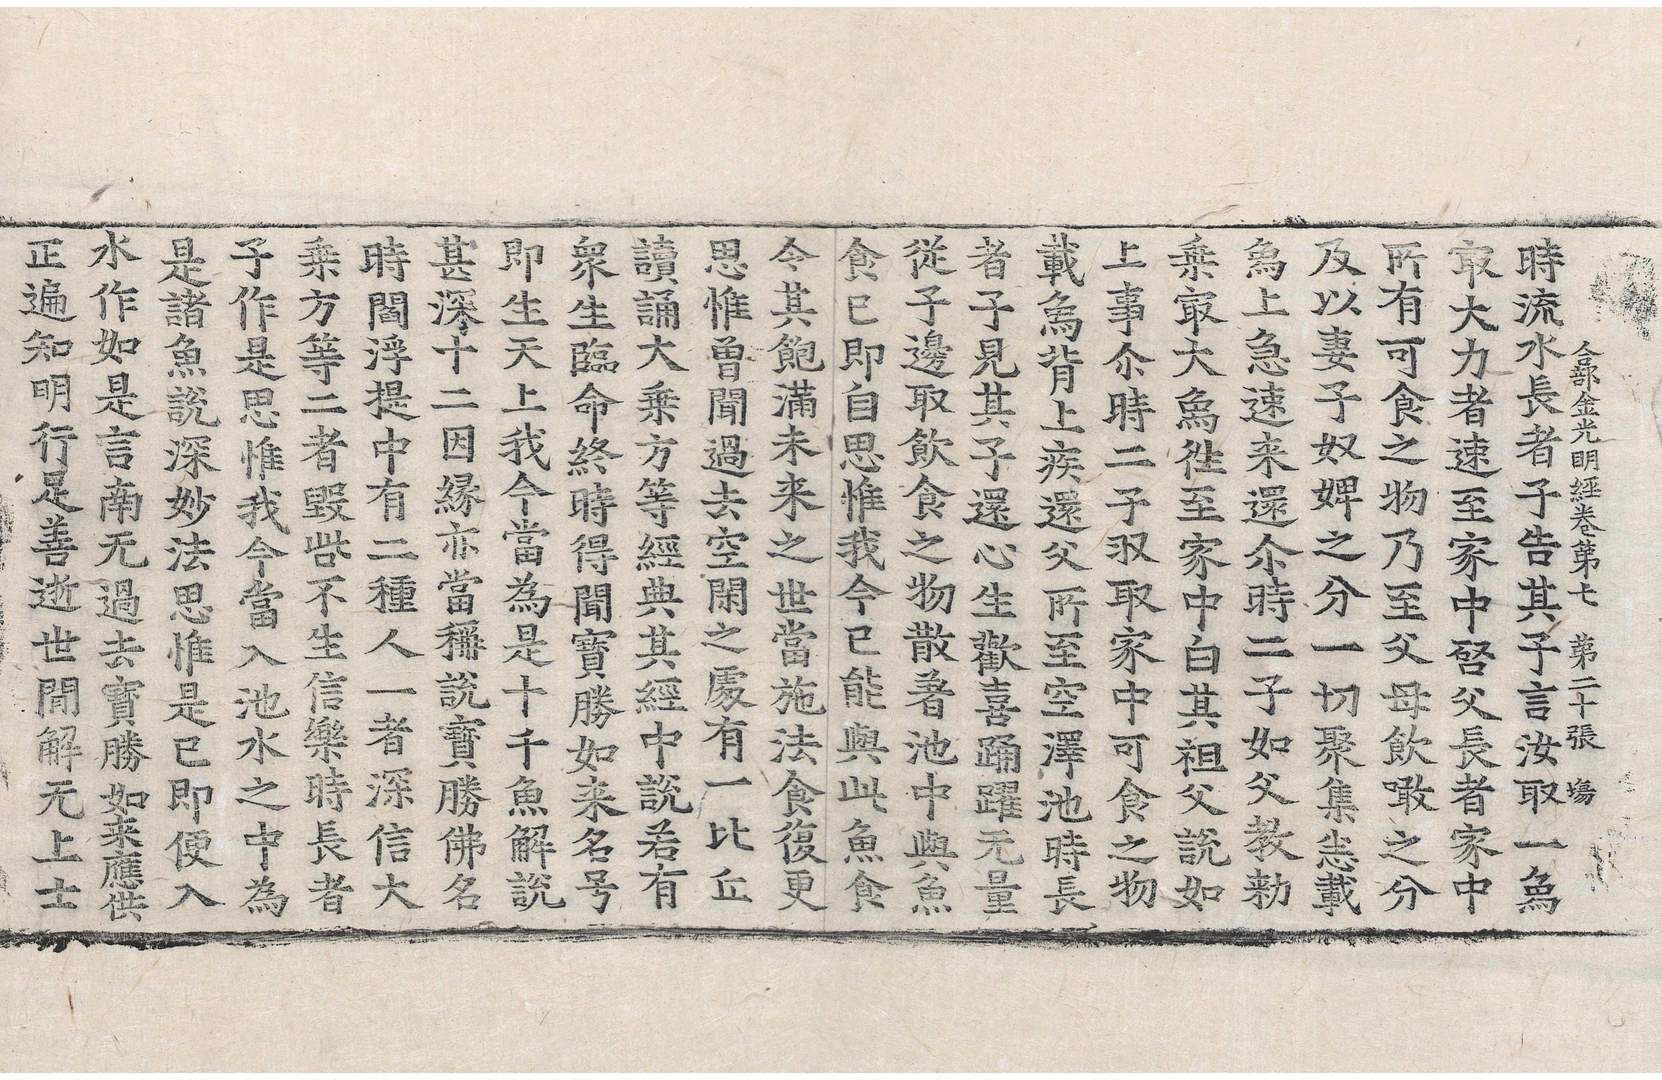 合部金光明經卷第七　第二十張　塲
時流水長者子告其子言汝取一象
冣大力者速至家中啓父長者家中
所有可食之物乃至父母飲噉之分
及以妻子奴婢之分一切聚集悉載
象上急速来還尒時二子如父教勑
乗冣大象徃至家中白其祖父說如
上事尒時二子収取家中可食之物
載象背上疾還父所至空澤池時長
者子見其子還心生歡喜踊躍无量
從子邊取飲食之物散著池中與魚
食已即自思惟我今已能與此魚食
令其飽滿未来之世當施法食復更
思惟曽聞過去空閑之處有一比丘
讀誦大乗方等經典其經中說若有
衆生臨命終時得聞寶勝如来名号
即生天上我今當為是十千魚解說
甚深十二因緣亦當稱說寶勝佛名
時閻浮提中有二種人一者深信大
乗方等二者毀呰不生信樂時長者
子作是思惟我今當入池水之中為
是諸魚說深妙法思惟是已即便入
水作如是言南无過去寶勝如来應供
正遍知明行足善逝世間解无上士